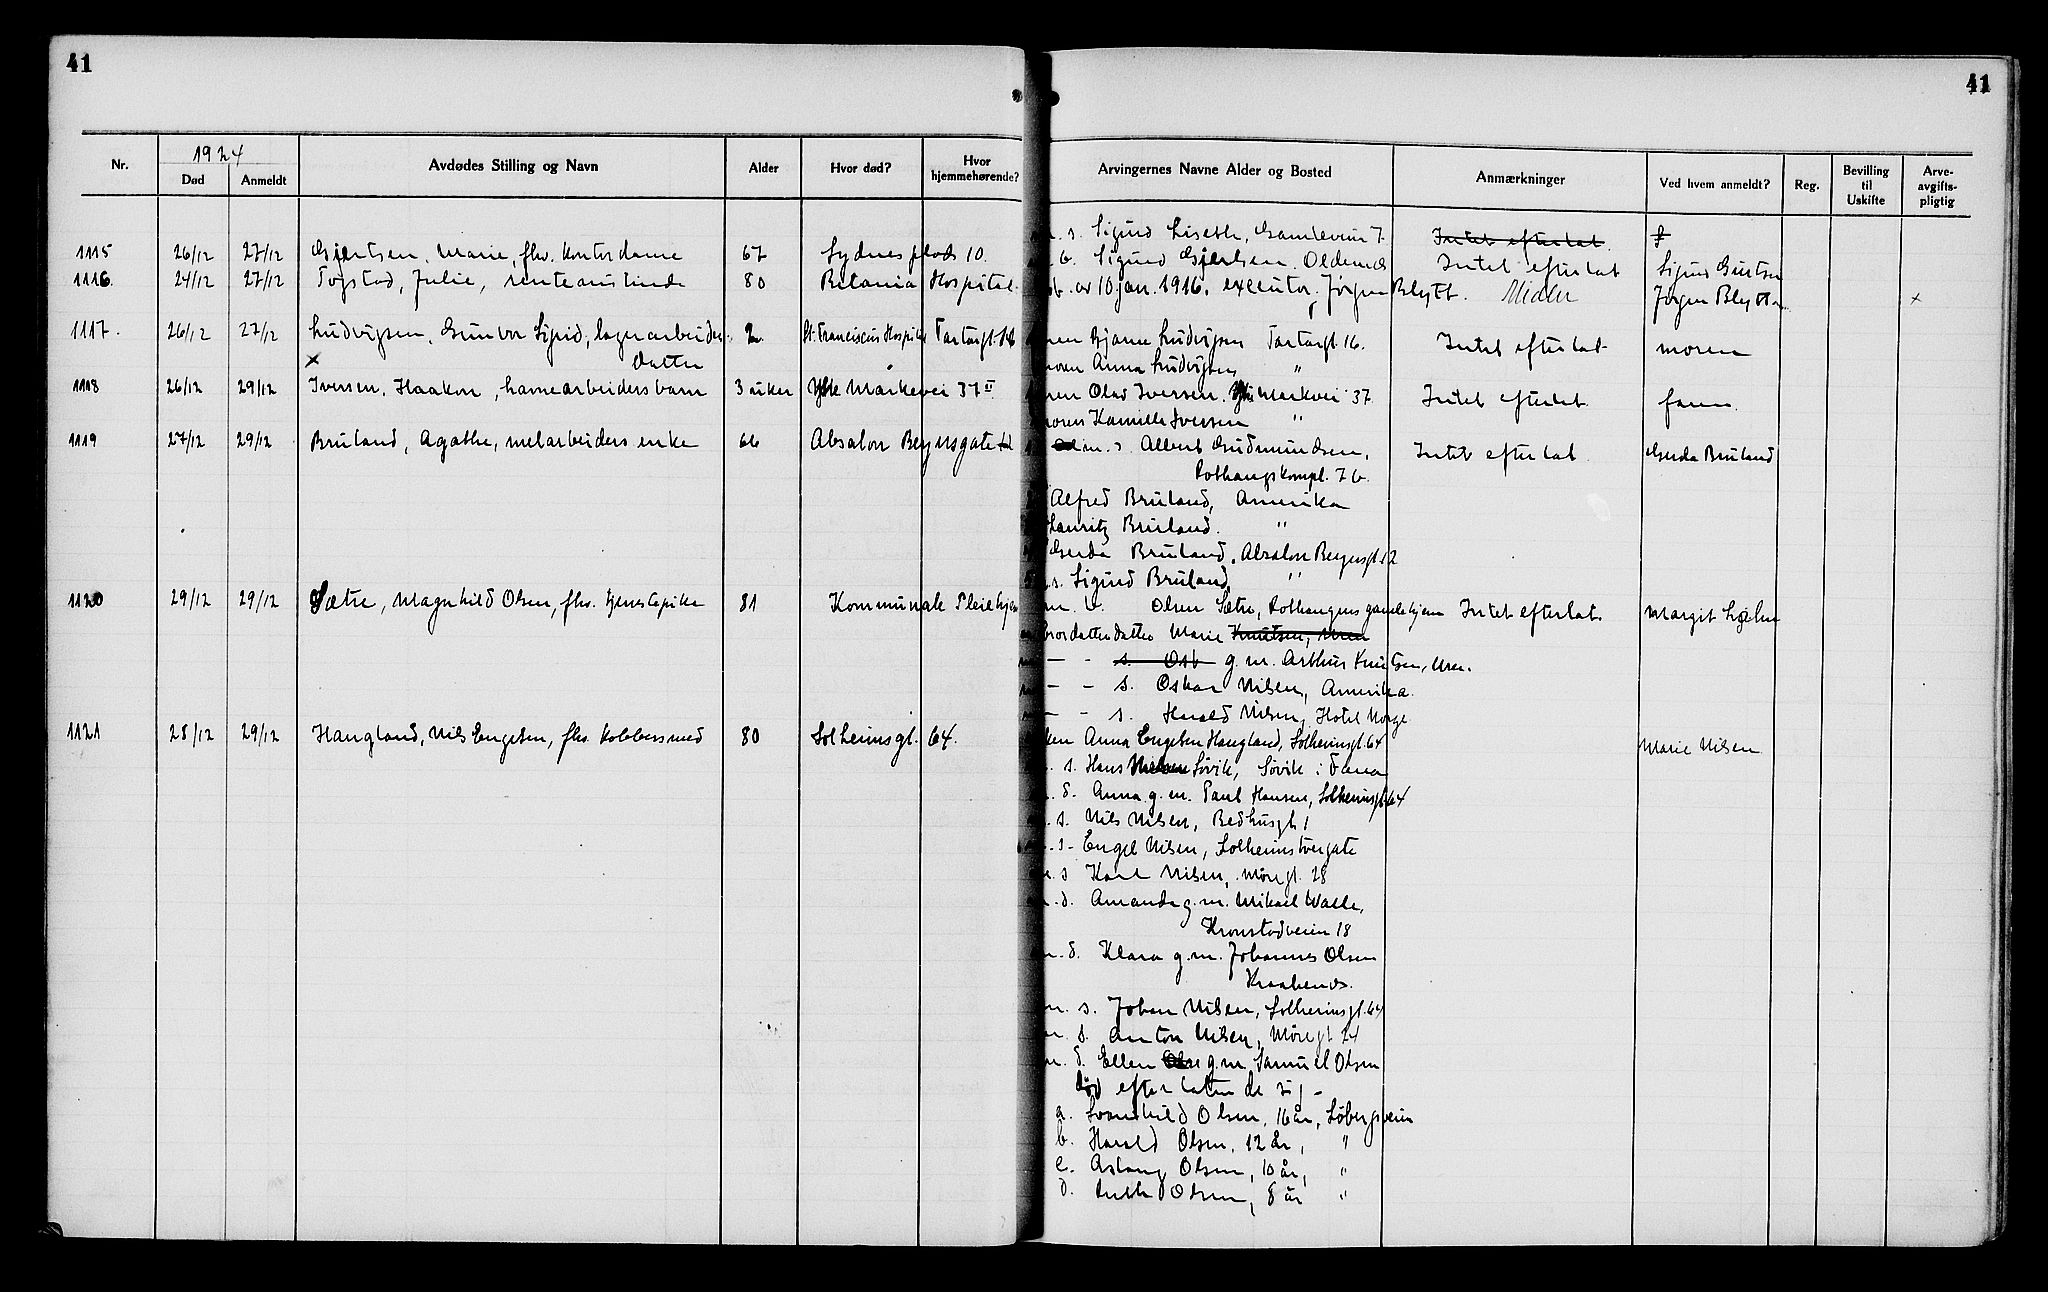 41
41
Nr. 1924 Avdødes Stilling og Navn Alder Hvor død? Hvor hjemmehørende?
Død Anmeldt
Arvingernes Navne Alder og Bosted Anmærkninger Ved hvem anmeldt? Reg. Bevilling til Uskifte Arveavgiftspligtig
1115 26/12 27/12 Gjertsen, Marie, fhv. kontordame 67 Sydnesplads 10.
s. Sigurd Liseth, Intet efterlat
Sigurd Gjertsen. Intet efterlat Sigurd
1116. 24/12 27/12 Togstad, Julie, 80 Betania Hospital.
av 10 jan. 1916. executor, Jørgen Blytt. Midler Jørgen Blytt x
1117. 26/12 27/12 Ludvigsen, Gunvor Sigrid, lagerarbeider datter 2 St. Franciscus Hospital Tartargt. 16
x
Bjarne Ludvigsen Tartargt. 16. Intet efterlat moren
moren Anna Ludvigsen "
1118 26/12 29/12 Iversen, Haakon, havnearbeiders barn 3 uker Ytre Markevei 37 II
Olav Iversen. Ytre Markvei 37 Intet efterlat faren.
moren Kamilla Iversen "
1119 27/12 29/12 Bruland, Agathe, enke 66 Absalon Beyersgate
m. s. Albert Gudmundsen, Intet efterlat Gerda Bruland
Rothaugskompl. 7 b.
Alfred Bruland, Amerika
Lauritz Bruland. "
Gerda Bruland. Absalon Beyersgt. 12
s. Sigurd Bruland "
1120 29/12 29/12 Sætre, Magnhild Olsen, fhv. tjenestepike 81 Kommunale Pleiehjem
Olsen Sætre, Rothaugens gamlehjem Intet efterlat. Margit
brordatterdatter Marie Knutsen, Uren
— - s. Osk g. m. Arthur Knutsen, Uren.
— - s. Oskar Nilsen, Amerika.
— - s. Harald Nilsen, Hotel Norge
1121 28/12 29/12 Haugland, Nils Engelsen, fhv. kobbersmed 80 Solheimsgt. 64.
enken Anna Engelsen Haugland, Solheimsgt. 64 Marie Nilsen
s. Hans Nilsen Søvik, Søvik i Fana
d. Anna g. m. Paul Hansen, Solheimsgt. 64
s. Nils Nilsen, Bedhusgt. 1
s. Engel Nilsen, Solheimstvergate
s. Karl Nilsen, Møregt. 28
d. Amanda g. m. Mikael Walle,
Kronstadveien 18
d. Klara g. m. Johannes Olsen
Kraakenes.
m. s. Johan Nilsen, Solheimsgt. 64
s. Anton Nilsen, Møregt. 24
d. Ellen g. m. Samuel Olsen
død efterlatende sig -
a. Svanhild Olsen, 16 år, Løbergsveien
b. Harald Olsen, 12 år, "
c. Aslaug Olsen, 10 år, "
d. Ruth Olsen, 8 år "